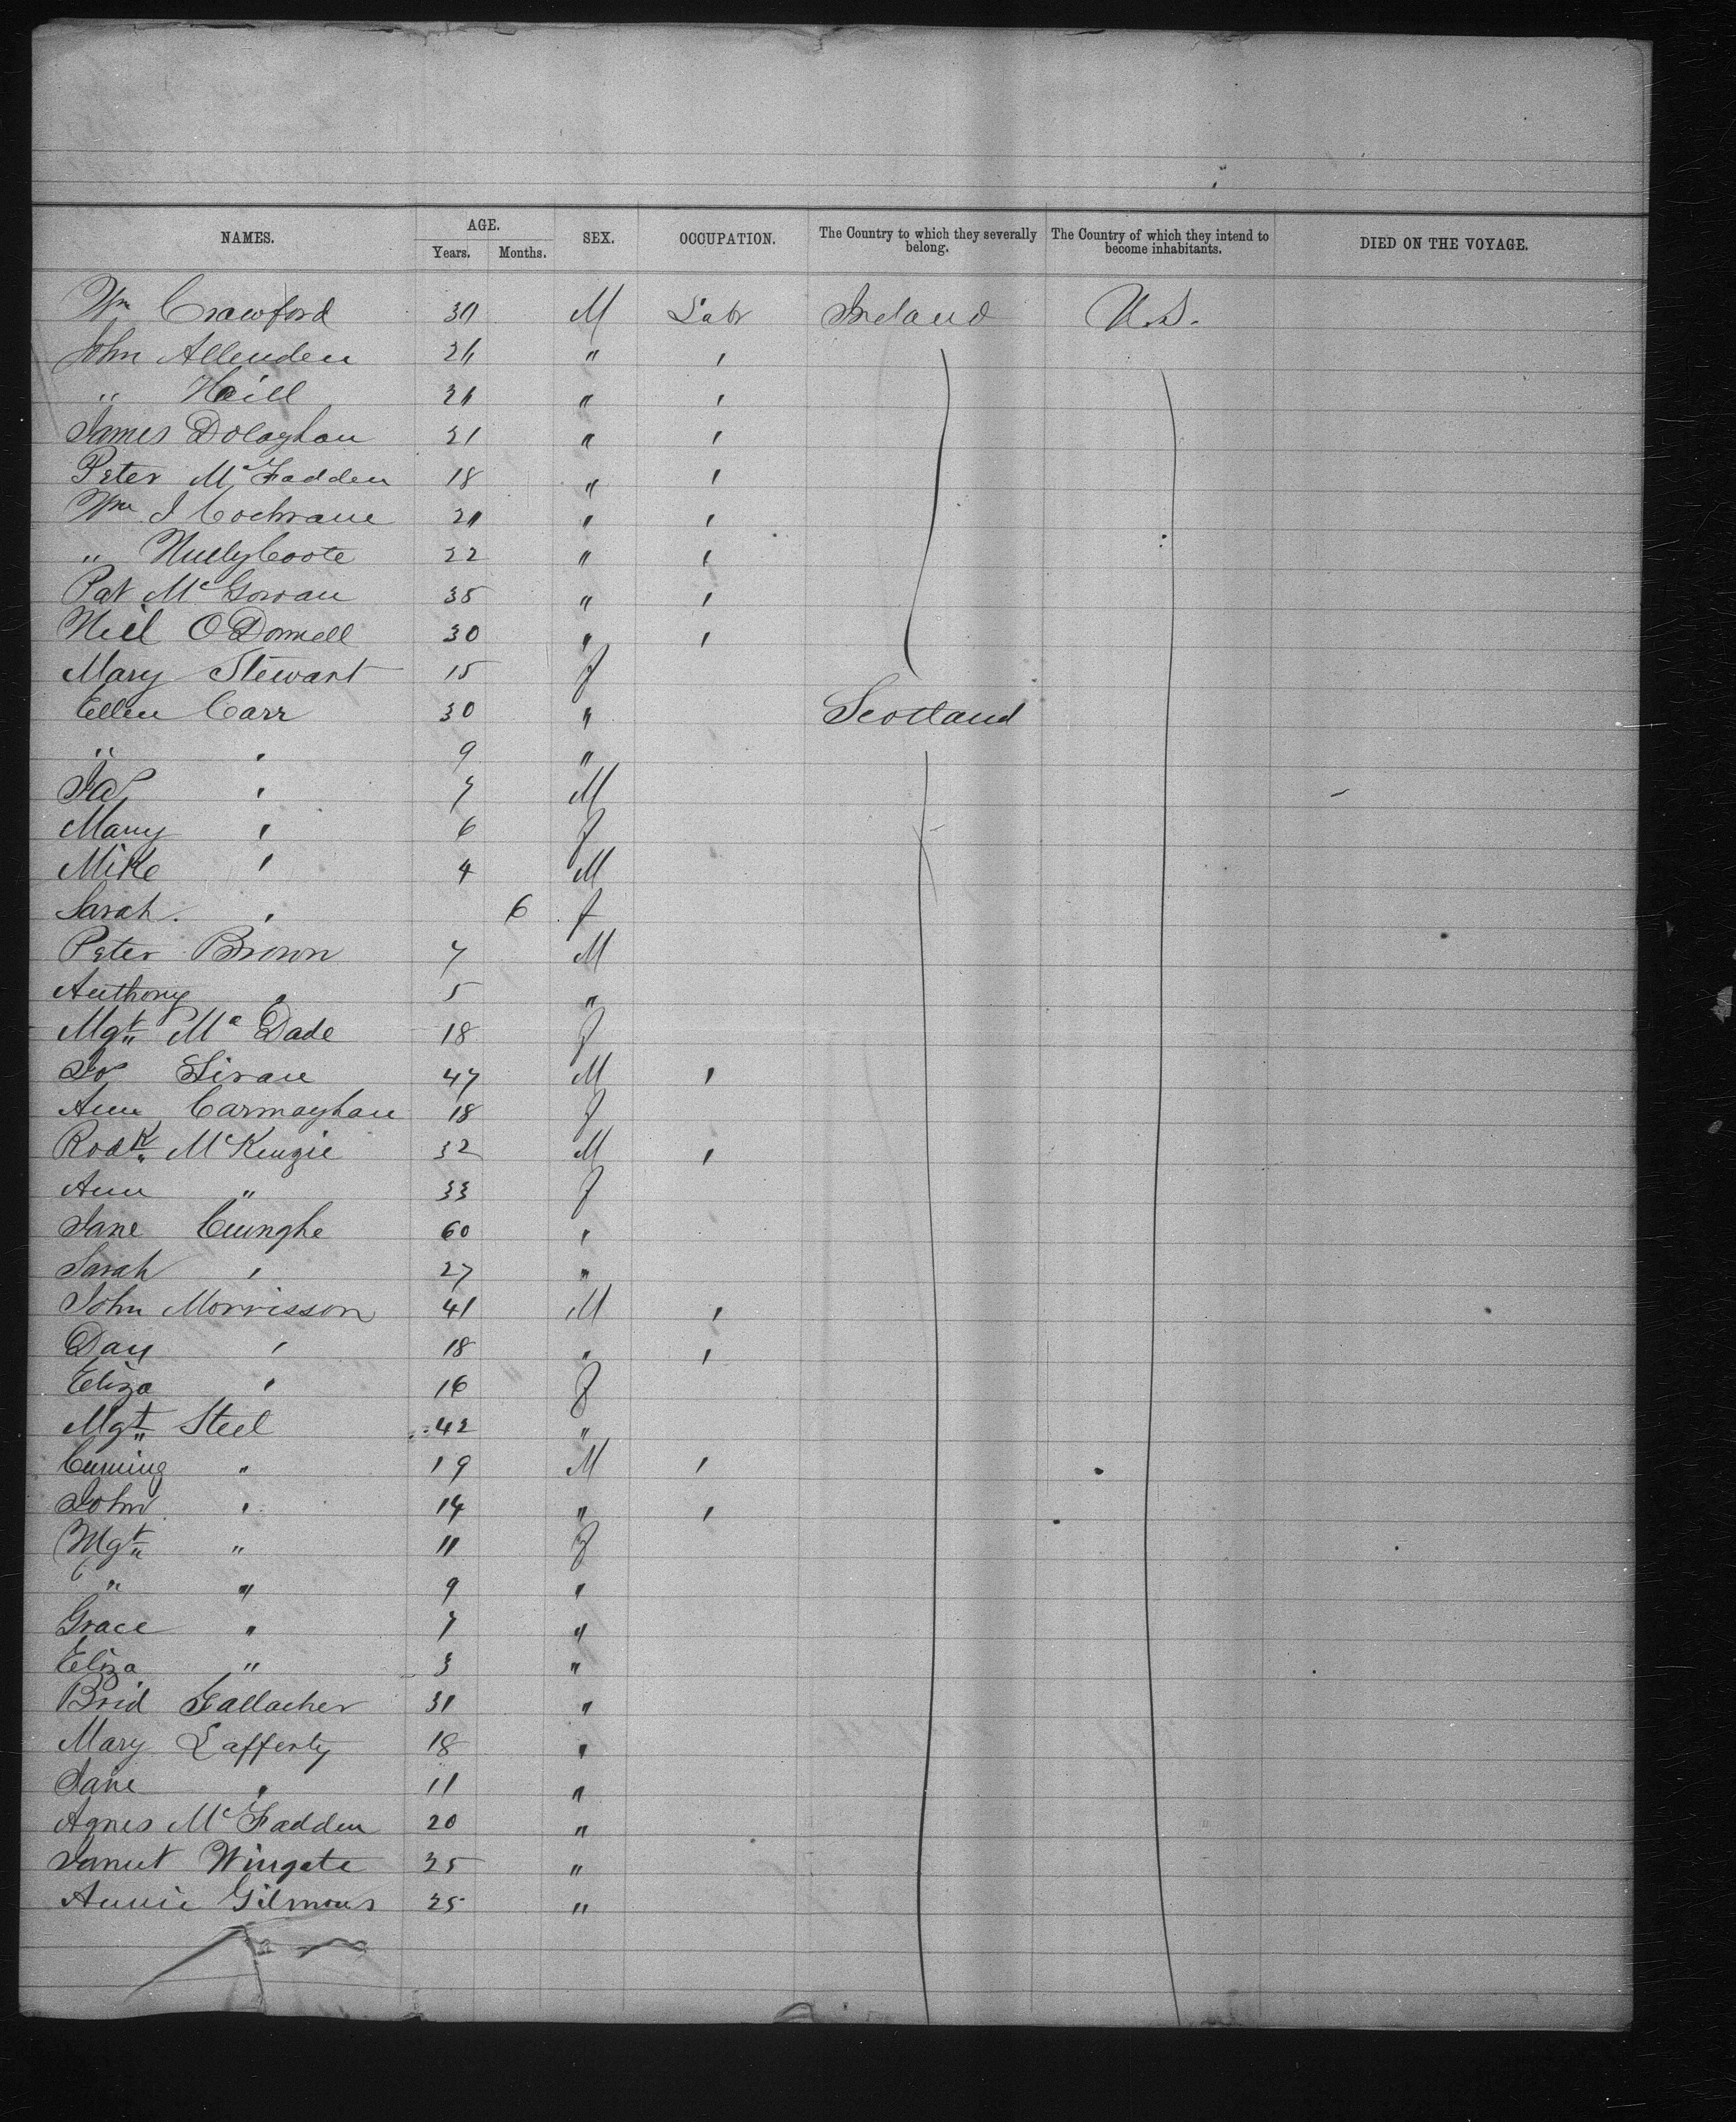 NAMES. AGE. SEX. OCCUPATION. The Country to which they severally belong. The Country of which they intend to become inhabitants. DIED ON THE VOYAGE.
Years. Months.
Wm Crawford 30 M Labr Ireland U.S.
John Allenden 21 " '
" Haill 21 " '
James Dolaghan 21 " '
Peter McFadden 18 " '
Wm J Cochrane 21 ' '
" 22 " '
Pat McGowan 35 " '
Neil ODonnell 30 " '
Mary Stewart 15 f
Ellen Carr 30 " Scotland
" ' 9 "
Jas ' 7 M
Mary ' 6 f
Mike ' 4 M
Sarah ' 6 f
Peter Brown 7 M
Anthony ' 5 "
Mgt McDade 18 f
Jos 47 M '
Ann Carmaghan 18 f
Rodk McKenzie 32 M '
Ann " 33 f
Jane Cuinghe 60 '
Sarah ' 27 "
John Morrisson 41 M '
Dan ' 18 " '
Eliza ' 16 f
Mgt Steel 42 "
Cuming " 19 M '
John ' 14 " '
Mgt " 11 f
" " 9 '
Grace " 7 "
Eliza " 3 "
Brid Gallacher 31 "
Mary Lafferty 18 '
Jane ' 11 "
Agnes McFadden 20 "
Janet Wingate 25 "
Annie Gilmour 25 "